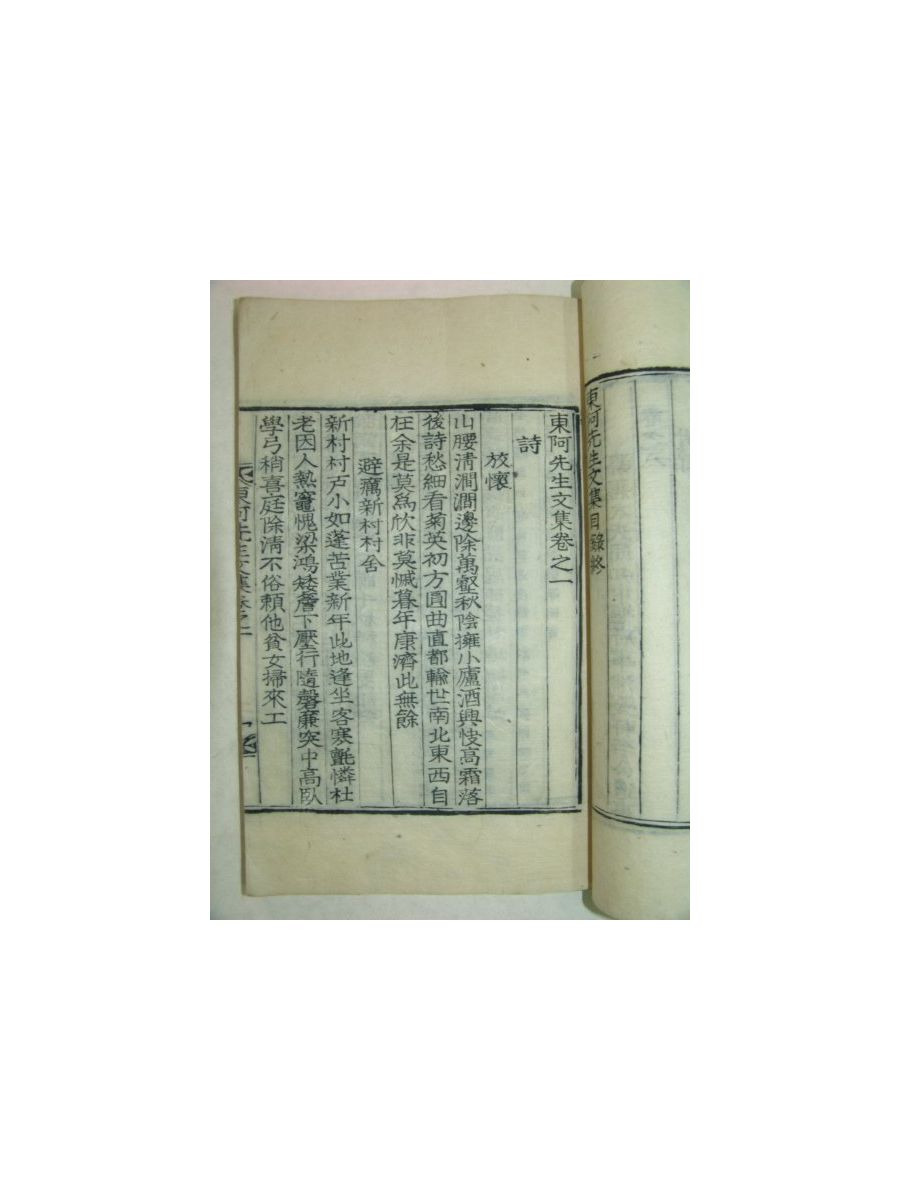 東阿先生文集目錄終
東阿先生文集卷之一
詩
放懷
山腰淸澗澗邊除萬壑秋陰擁小廬酒興悛高霜落
後詩愁細看菊英初方圓曲直都輸世南北東西自
在余是莫爲欣非莫慽暮年康濟此無餘
避癘新村村舍
新村村戶小如蓬苦業新年此地逢坐客寒氈憐杜
老因人熱竈愧梁鴻矮簷下壓行隨磬廉突中高臥
學弓稍喜庭除淸不俗賴他貧女掃來工
東阿先生文集卷之一